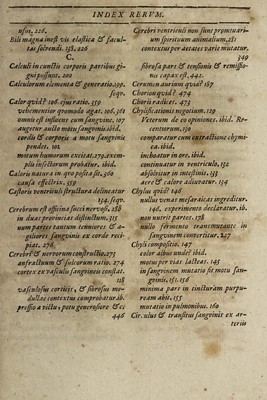 INDEX RERVM.
usus, 226.
Bili magna inest vis elastica & facul-
tas solvendi. 158. 226
C.
Calculi in cunctis corporis partibus gi-
gni possunt. 200
Calculorum elementa & generatio. 199.
seqq.
Calor quid? 106. ejus ratio. 359
vehementior quomodo agat. 306. 361
omnis est influens cum sangvine. 107
augetur aucto motu sangvinis ibid.
cordis & corporis a motu sangvinis
pendet. 101
motum humorum excitat. 274. exem-
plis insectorum probatur. ibid.
Caloris natura in quo posita sit. 360
causa effectrix. 359
Castoris ventriculi structura delineatur
134. seqq.
Cerebrum est officina succi nervosi. 288
in duas provincias distinctum. 315
num partes tantum tenuiores & a-
giliores sangvinis ex corde reci-
piat. 276
Cerebri & nervorum constructio. 273
anfractuum & sulcorum ratio. 274
cortex ex vasculis sangvineis constat.
118
vasculosus corticis, & fibrosus me-
dullae contextus comprobatur. ib.
pressio a victu, potu generosiore &c.
446
Cerebri ventriculi non sunt promtuari-
um spirituum animalium. 281
contextus per aetates varie mutatur.
349
fibrosa pars & tensionis & remissio-
nis capax est. 442.
Cerumen aurium quid? 167
Chorion quid? 474
Chorii radices. 473
Chylificationis negotium. 129
Veterum de eo opiniones. ibid. Re-
centiorum. 130
comparatur cum extractione chymi-
ca. ibid.
inchoatur in ore. ibid.
continuatur in ventriculo. 132
absolvitur in intestinis. 133
aere & calore adjuvatur. 134
Chylus quid? 146
nullus venas mesaraicas ingreditur.
146. experimento declaratur. ib.
non nutrit partes. 178
nullo fermento transmutante in
sangvinem convertitur. 247
Chyli compositio. 147
color albus unde? ibid.
motus per vias lacteas. 145
in sangvinem mutatio fit motu san-
gvinis. 151. 156
minima pars in tincturam purpu-
ream abit. 155
mutatio in pulmonibus. 160
Circulus & transitus sangvinis ex ar-
teriis